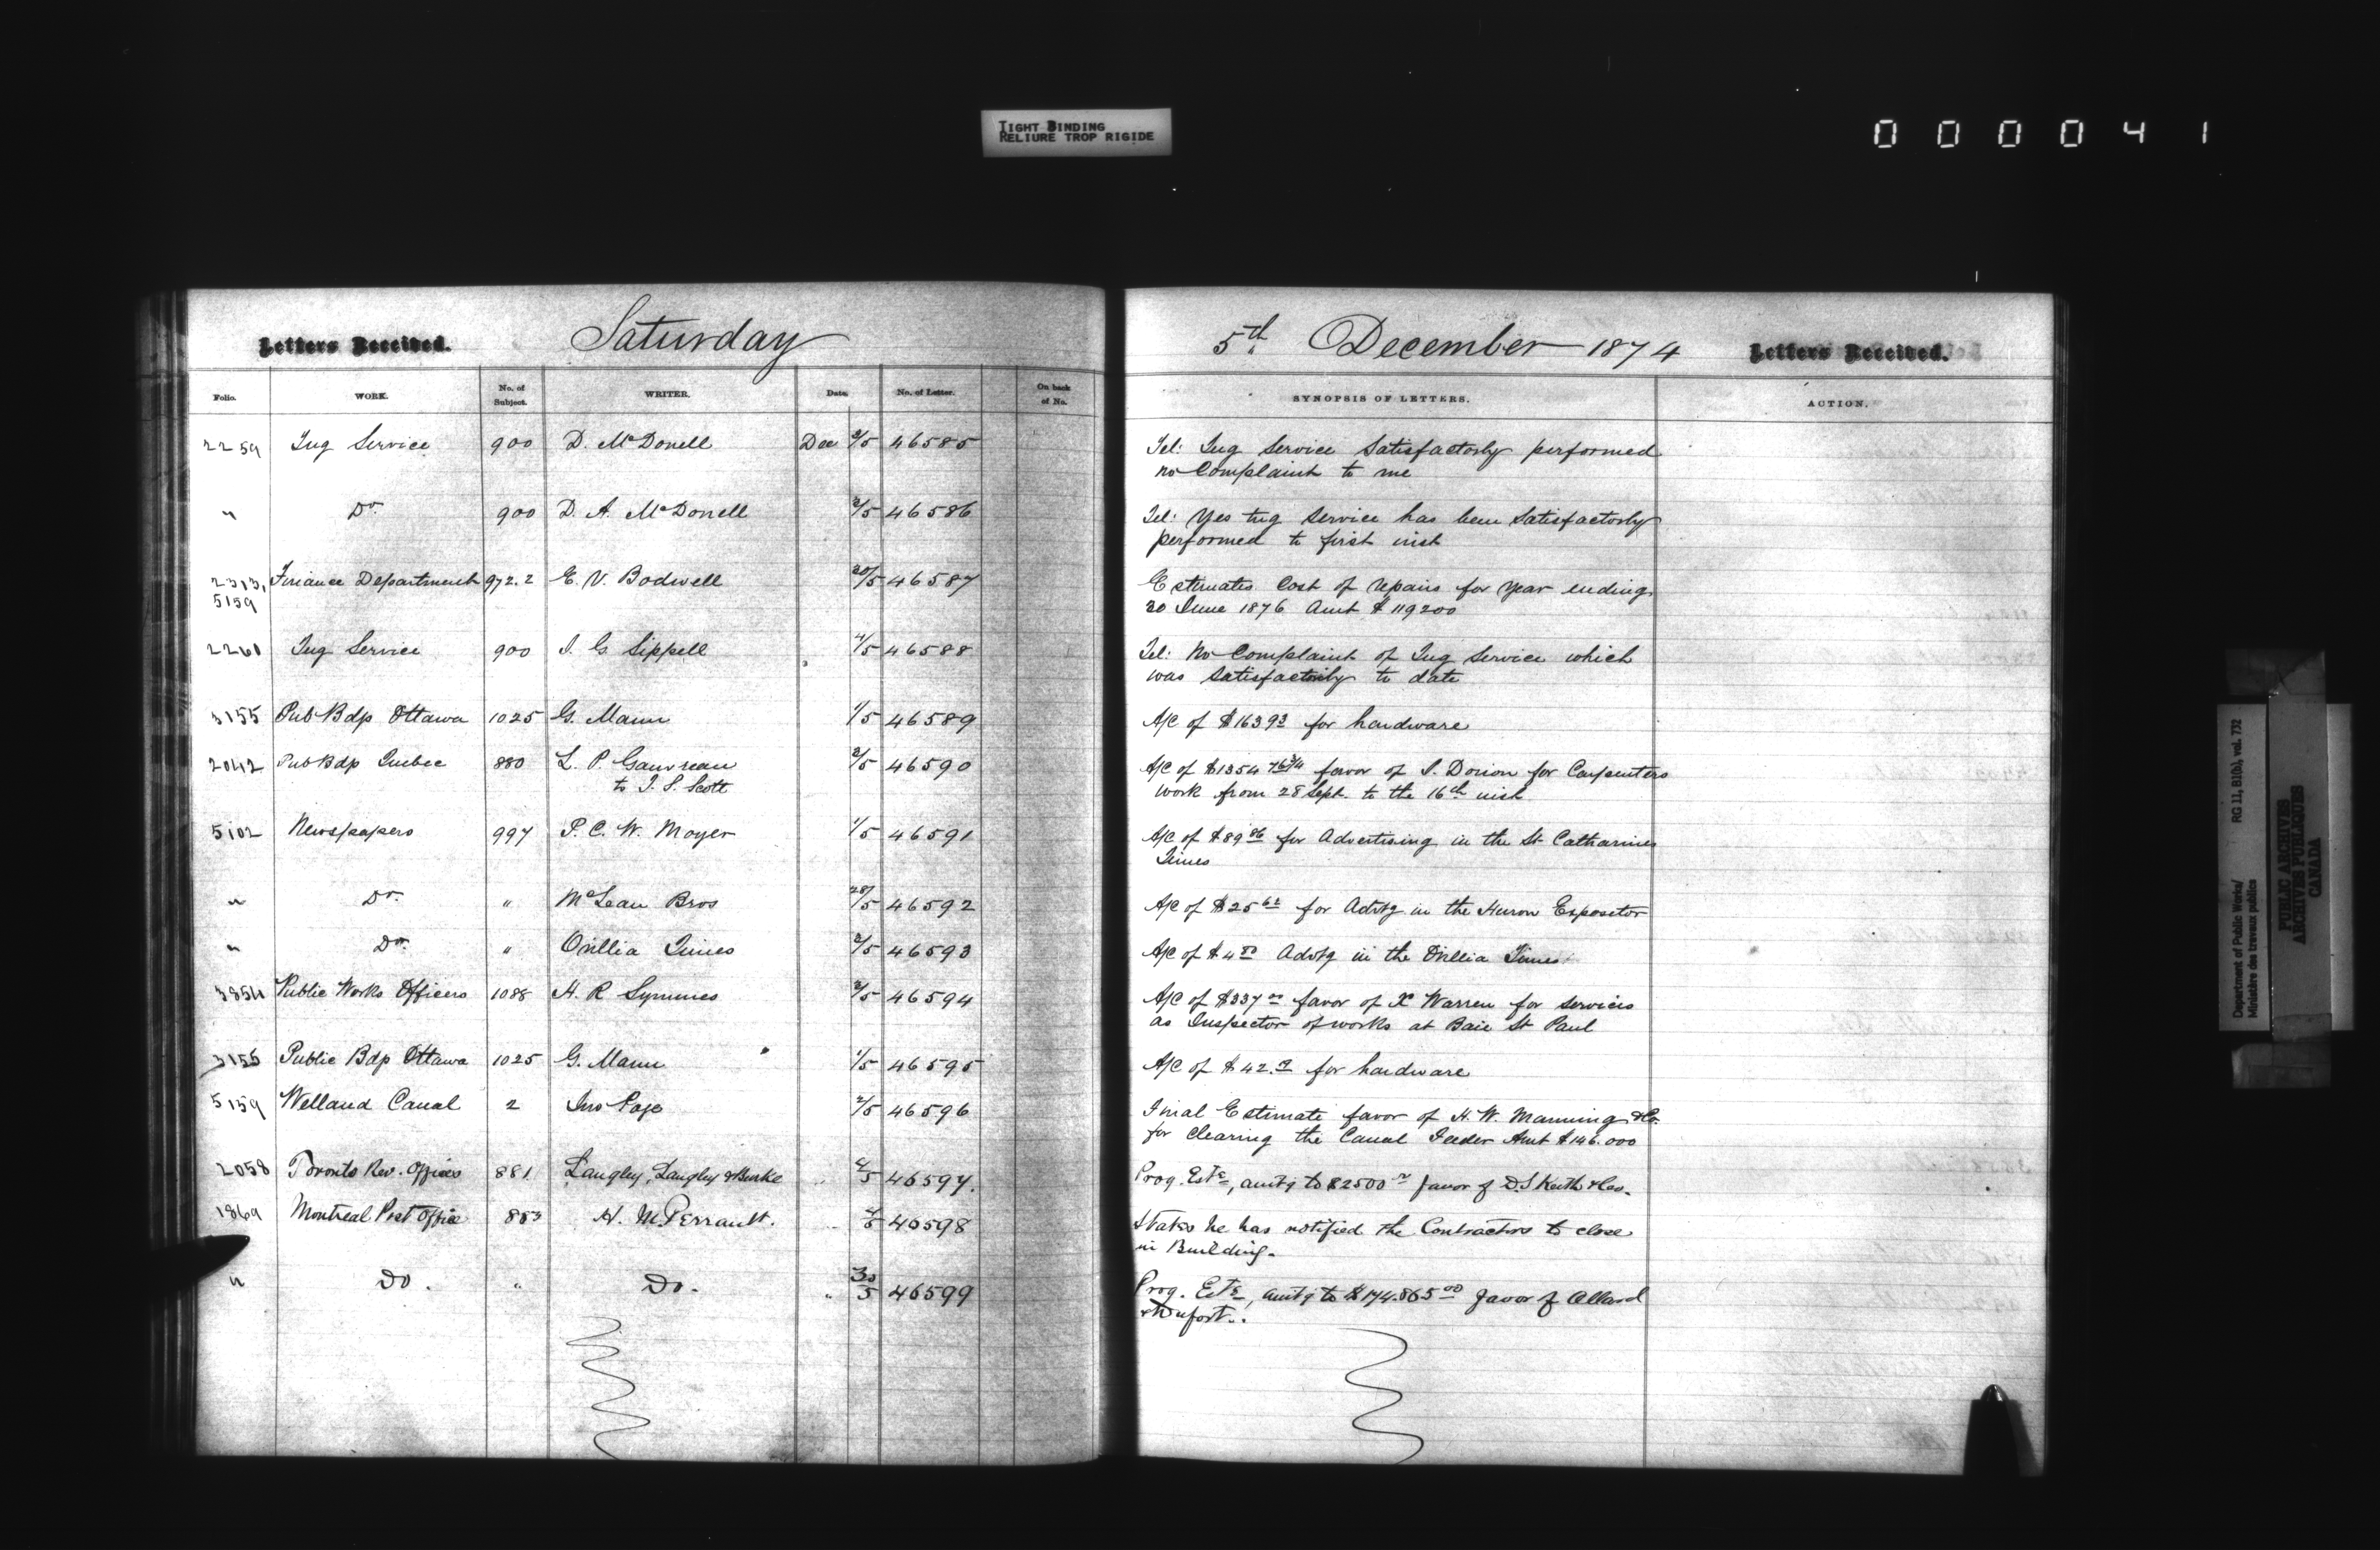 TIGHT BINDING
RELIURE TROP RIGIDE
000041
Letters Received. Saturday
Folio. WORK. No. of Subject. WRITER. Date. No. of Letter. On back of No.
2259 Tug Service 900 D. McDonell Dec 3/5 46585
" Do. 900 D. A. McDonell 3/5 46586
2313, Finance Department 972.2 E. V. Bodwell 30/5 46587
5159
2260 Tug Service 900 J. G Sippell 4/5 46588
3155 Pub Bdp Ottawa 1025 G. Mann 1/5 46589
2042 Pub Bdp Quebec 880 L. P. Gauvreau 3/5 46590
to T. S. Scott
5102 Newspapers 997 P. C. W. Moyer 1/5 46591
" Do. " McLean Bros 28/5 46592
" Do. " Orillia Times 3/5 46593
3854 Public Works Officers 1088 H. R Symmes 3/5 46594
3155 Public Bdp Ottawa 1025 G. Mann 1/5 46595
5159 Welland Canal 2 Jno Page 2/5 46596
2058 Toronto Rev. Offices 881 Langley, Langley & Burke " 4/5 46597.
1869 Montreal Post Office 883 H. M. Perrault. " 4/5 46598
" Do. " Do. " 30/5 46599
5th December 1874 Letters Received.
SYNOPSIS OF LETTERS. ACTION.
Tel: Tug Service Satisfactorly performed
no Complaint to me
Tel: Yes tug Service has been Satisfactorly
performed to first inst
Estimates Cost of repairs for year ending
30 June 1876 Amt $119200
Tel: No Complaint of Tug Service which
was Satisfactorily to date
A/C of $163 93 for hardware
A/C of $1354 76 3/4 favor of S. Dorion for Carpenters
work from 28 Sept. to the 16th inst
A/C of $89 86 for Advertising in the St Catharines
Times
A/C of $25 62 for Advtg in the Huron Expositor
A/C of $4 Advtg in the Orillia Times
A/C of $337 favor of X Warren for services
as Inspector of works at Baie St Paul
A/C of $42. for hardware
Final Estimate favor of H. W. Manning & Co.
for Clearing the Canal Feeder Amt $146.000
Prog. Este, amtg to $2500 favor of D. S Keith & Co.
States he has notified the Contractors to close
in Building.
Prog. Este, amtg to $174.865 00 favor of Allard
& Dufort.
Department of Public Works/
Ministère des travaux publics
RG 11, B1(b), vol. 732
PUBLIC ARCHIVES
ARCHIVES PUBLIQUES
CANADA